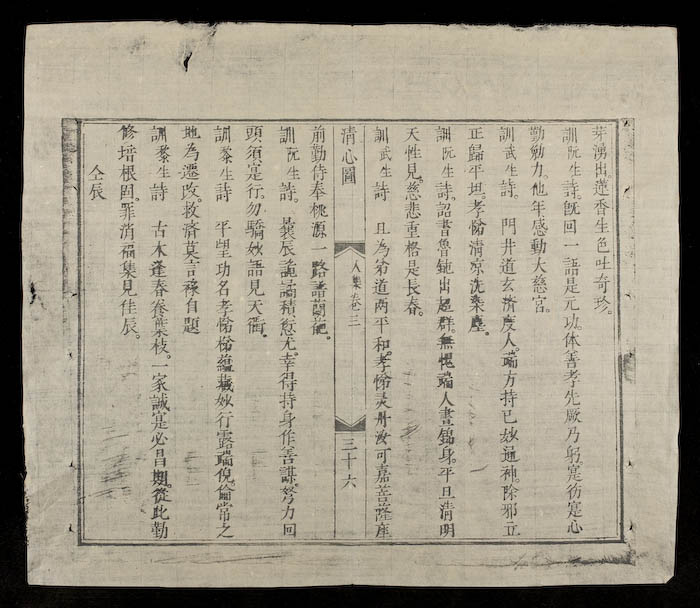 芽湧出。蓮香生色吐奇珍。
訓阮生詩。既回一語是元功。体善孝先厥乃躬。寔彷寔心
勤勉力。他年感動大慈宮。
訓武生詩。門井道玄済度人。端方持已妙通神。除邪立
正歸平坦。孝悌清凉洗染塵。
訓阮生詩。詔書魯鈍出超群。無愧端人晝錦身。平旦清明
天性見。慈悲重格是長春。
訓武生詩 且為弟道两平和。孝悌灵丹汝可嘉菩薩座
清心圖
人集卷三
三十六
前勤侍奉桃源一路譜蘭葩。
訓阮生詩。曩辰詭譎積愆尤。幸得持身作善謀。努力回
頭須是行。勿驕妙語見天衢。
訓黎生詩 平望功名孝悌悌蘊藏妙行露端倪。倫常之
地為遷改。救済莫言祿自題
訓黎生詩 古木逢春養葉枝。一家誠寔必昌期。從此勤
修培根固。罪消福集見佳辰。
仝辰